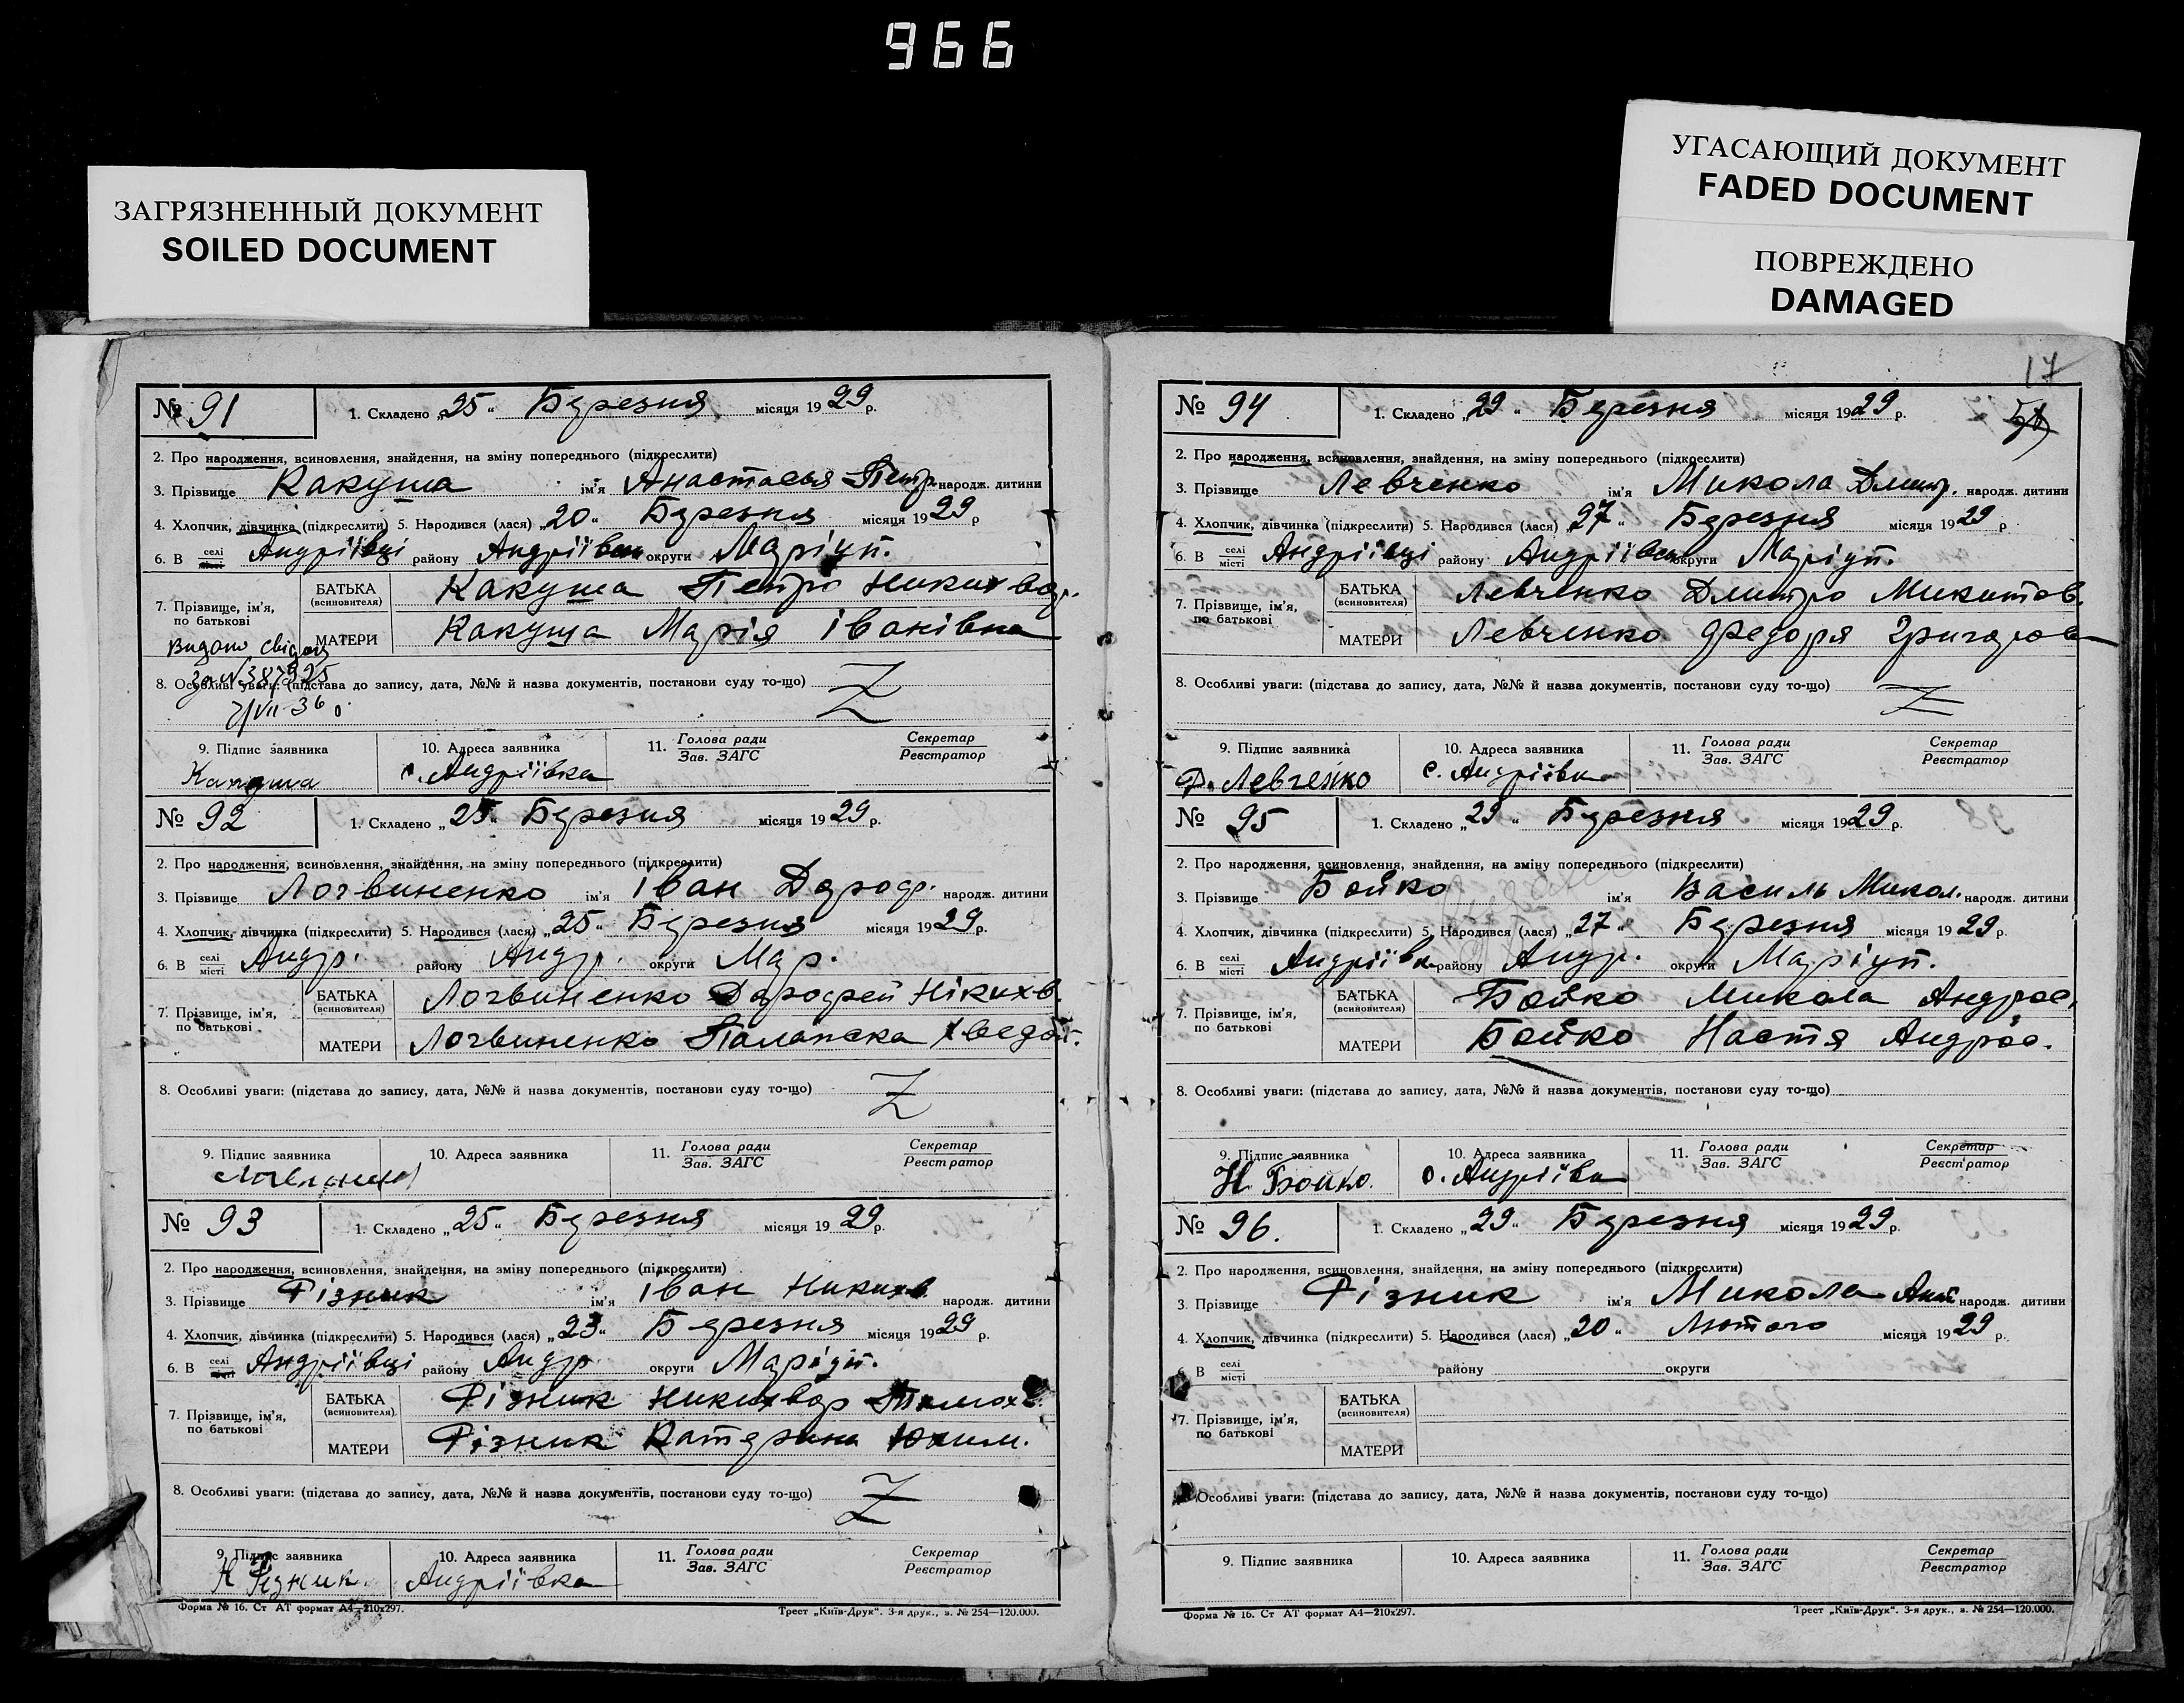 966
ЗАГРЯЗНЕННЫЙ ДОКУМЕНТ
SOILED DOCUMENT
УГАСАЮЩИЙ ДОКУМЕНТ
FADED DOCUMENT
ПОВРЕЖДЕНО
DAMAGED
№ 91 1. Складено „25“ Березня місяця 1929 р.
2. Про народження, всиновлення, знайдення, на зміну попереднього (підкреслити)
3. Прізвище Какуша ім'я Анастасья Петр. народж. дитини
4. Хлопчик, дівчинка (підкреслити) 5. Народився (лася) „20“ Березня місяця 1929 р
6. В селі місті Андріївці району Андріївськ округи Маріуп.
7. Прізвище, ім'я, по батькові
БАТЬКА (всиновителя) Какуша Петро
МАТЕРИ Какуша Марія Іванівна
Видано
8. Особливі уваги: (підстава до запису, дата, №№ й назва документів, постанови суду то-що) Z
9. Підпис заявника 10. Адреса заявника 11. Голова ради Зав. ЗАГС Секретар Реєстратор
с. Андріївка
№ 92 1. Складено „25“ Березня місяця 1929 р.
2. Про народження, всиновлення, знайдення, на зміну попереднього (підкреслити)
3. Прізвище Логвиненко ім'я Іван народж. дитини
4. Хлопчик, дівчинка (підкреслити) 5. Народився (лася) „25“ Березня місяця 1929 р.
6. В селі місті Андр. району Андр. округи Мар.
7. Прізвище, ім'я, по батькові
БАТЬКА (всиновителя) Логвиненко
МАТЕРИ Логвиненко
8. Особливі уваги: (підстава до запису, дата, №№ й назва документів, постанови суду то-що) Z
9. Підпис заявника 10. Адреса заявника 11. Голова ради Зав. ЗАГС Секретар Реєстратор
№ 93 1. Складено „25“ Березня місяця 1929 р.
2. Про народження, всиновлення, знайдення, на зміну попереднього (підкреслити)
3. Прізвище Різник ім'я Іван народж. дитини
4. Хлопчик, дівчинка (підкреслити) 5. Народився (лася) „23“ Березня місяця 1929 р.
6. В селі місті Андріївці району Андр округи Маріуп.
7. Прізвище, ім'я, по батькові
БАТЬКА (всиновителя) Різник
МАТЕРИ Різник Катерина Юхим.
8. Особливі уваги: (підстава до запису, дата, №№ й назва документів, постанови суду то-що) Z
9. Підпис заявника 10. Адреса заявника 11. Голова ради Зав. ЗАГС Секретар Реєстратор
Н Різник. Андріївка
Форма № 16. Ст АТ формат А4—210х297. Трест „Київ-Друк“. 3-я друк., з. № 254—120.000.
17
№ 94 1. Складено „29“ Березня місяця 1929 р.
2. Про народження, всиновлення, знайдення, на зміну попереднього (підкреслити)
3. Прізвище Левченко ім'я Микола Дмитр. народж. дитини
4. Хлопчик, дівчинка (підкреслити) 5. Народився (лася) „27“ Березня місяця 1929 р
6. В селі місті Андріївці району Андріївськ округи Маріуп.
7. Прізвище, ім'я, по батькові
БАТЬКА (всиновителя) Левченко Дмитро Микитов.
МАТЕРИ Левченко
8. Особливі уваги: (підстава до запису, дата, №№ й назва документів, постанови суду то-що) Z
9. Підпис заявника 10. Адреса заявника 11. Голова ради Зав. ЗАГС Секретар Реєстратор
Д. Левченко с. Андріївка
№ 95 1. Складено „29“ Березня місяця 1929 р.
2. Про народження, всиновлення, знайдення, на зміну попереднього (підкреслити)
3. Прізвище Бойко ім'я Василь Микол. народж. дитини
4. Хлопчик, дівчинка (підкреслити) 5. Народився (лася) „27“ Березня місяця 1929 р.
6. В селі місті Андріївка району Андр. округи Маріуп.
7. Прізвище, ім'я, по батькові
БАТЬКА (всиновителя) Бойко Микола
МАТЕРИ Бойко Настя
8. Особливі уваги: (підстава до запису, дата, №№ й назва документів, постанови суду то-що)
9. Підпис заявника 10. Адреса заявника 11. Голова ради Зав. ЗАГС Секретар Реєстратор
Н. Бойко. с. Андріївка
№ 96. 1. Складено „29“ Березня місяця 1929 р.
2. Про народження, всиновлення, знайдення, на зміну попереднього (підкреслити)
3. Прізвище Різник ім'я Микола народж. дитини
4. Хлопчик, дівчинка (підкреслити) 5. Народився (лася) „20“ Лютого місяця 1929 р.
6 В селі місті району округи
7. Прізвище, ім'я, по батькові
БАТЬКА (всиновителя)
МАТЕРИ
Особливі уваги: (підстава до запису, дата, №№ й назва документів, постанови суду то-що)
9. Підпис заявника 10. Адреса заявника 11. Голова ради Зав. ЗАГС Секретар Реєстратор
Форма № 16. Ст АТ формат А4—210х297. Трест „Київ-Друк“. 3-я друк., з. № 254—120.000.